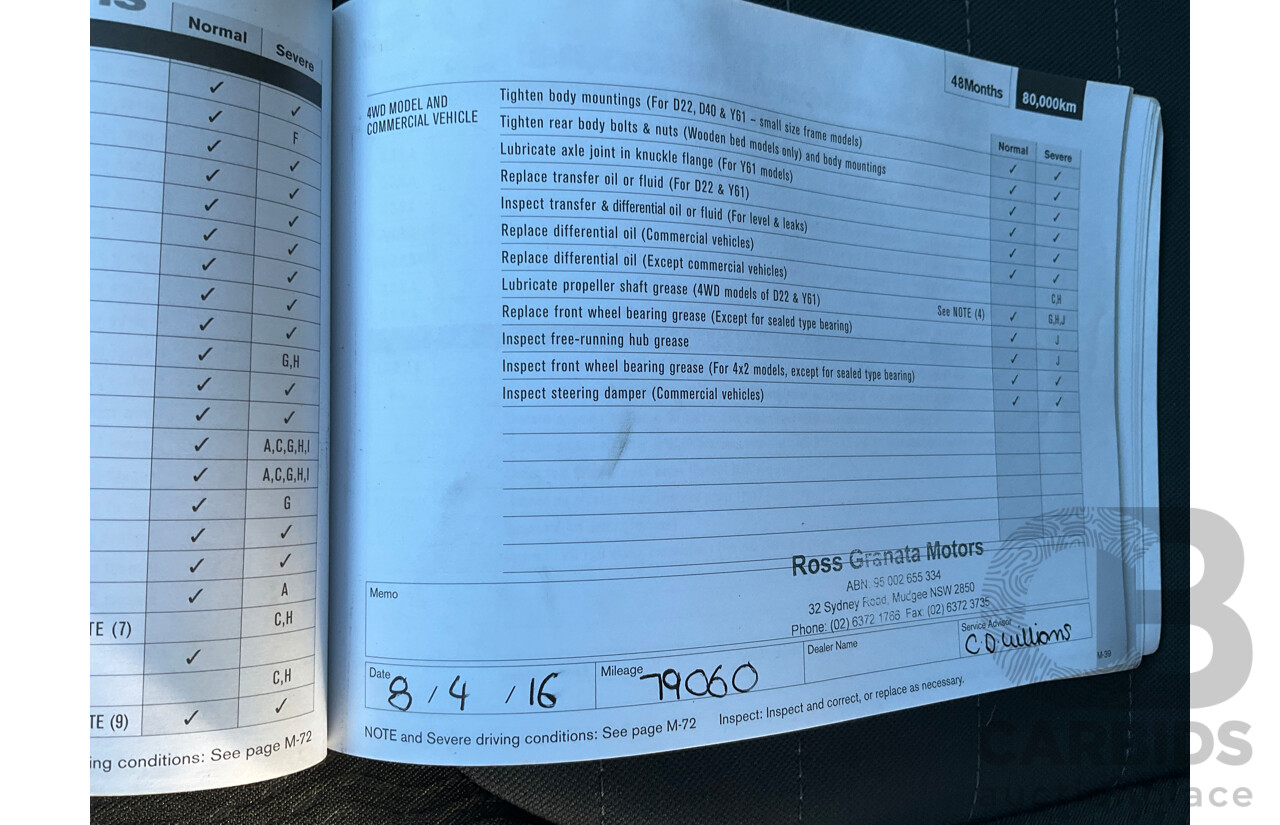 Normal Severe
✓ ✓
✓ F
✓ ✓
✓ ✓
✓ ✓
✓ ✓
✓ ✓
✓ ✓
✓ ✓
✓ G,H
✓ ✓
✓ ✓
✓ A,C,G,H,I
✓ A,C,G,H,I
✓ G
✓ ✓
✓ ✓
✓ A
TE (7) C,H
✓
C,H
TE (9) ✓ ✓
ing conditions: See page M-72
48Months 80,000km
Normal Severe
4WD MODEL AND
COMMERCIAL VEHICLE
Tighten body mountings (For D22, D40 & Y61 – small size frame models) ✓ ✓
Tighten rear body bolts & nuts (Wooden bed models only) and body mountings ✓ ✓
Lubricate axle joint in knuckle flange (For Y61 models) ✓ ✓
Replace transfer oil or fluid (For D22 & Y61) ✓ ✓
Inspect transfer & differential oil or fluid (For level & leaks) ✓ ✓
Replace differential oil (Commercial vehicles) ✓ ✓
Replace differential oil (Except commercial vehicles) C,H
Lubricate propeller shaft grease (4WD models of D22 & Y61) See NOTE (4) ✓ G,H,J
Replace front wheel bearing grease (Except for sealed type bearing) ✓ J
Inspect free-running hub grease ✓ J
Inspect front wheel bearing grease (For 4x2 models, except for sealed type bearing) ✓ ✓
Inspect steering damper (Commercial vehicles) ✓ ✓
Memo
Ross Granata Motors
ABN: 95 002 655 334
32 Sydney Road, Mudgee NSW 2850
Phone: (02) 6372 1766 Fax: (02) 6372 3735
Date 8 / 4 / 16
Mileage 79060
Dealer Name
Service Advisor
M-39
NOTE and Severe driving conditions: See page M-72 Inspect: Inspect and correct, or replace as necessary.
CARBIDS